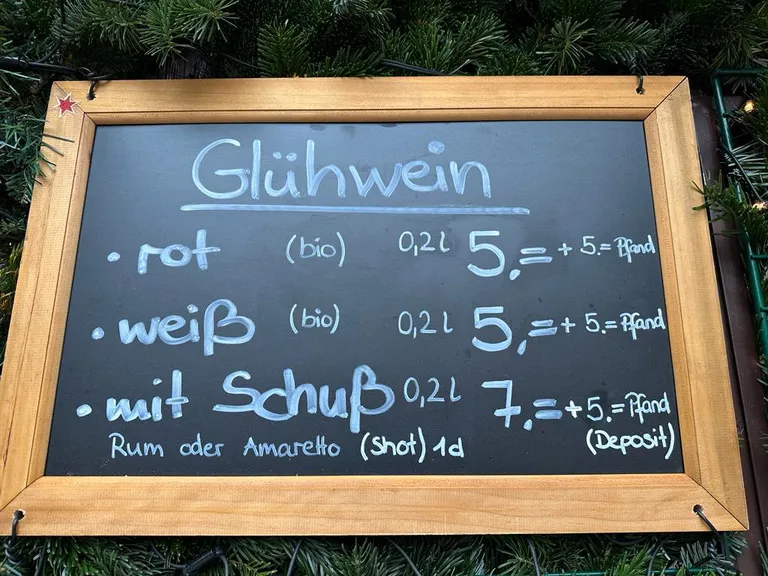 Glühwein
• rot (bio) 0,2l 5,= + 5.= Pfand
• weiß (bio) 0,2l 5,= + 5.= Pfand
• mit Schuß 0,2l 7,= + 5.= Pfand
Rum oder Amaretto (Shot) 1d (Deposit)